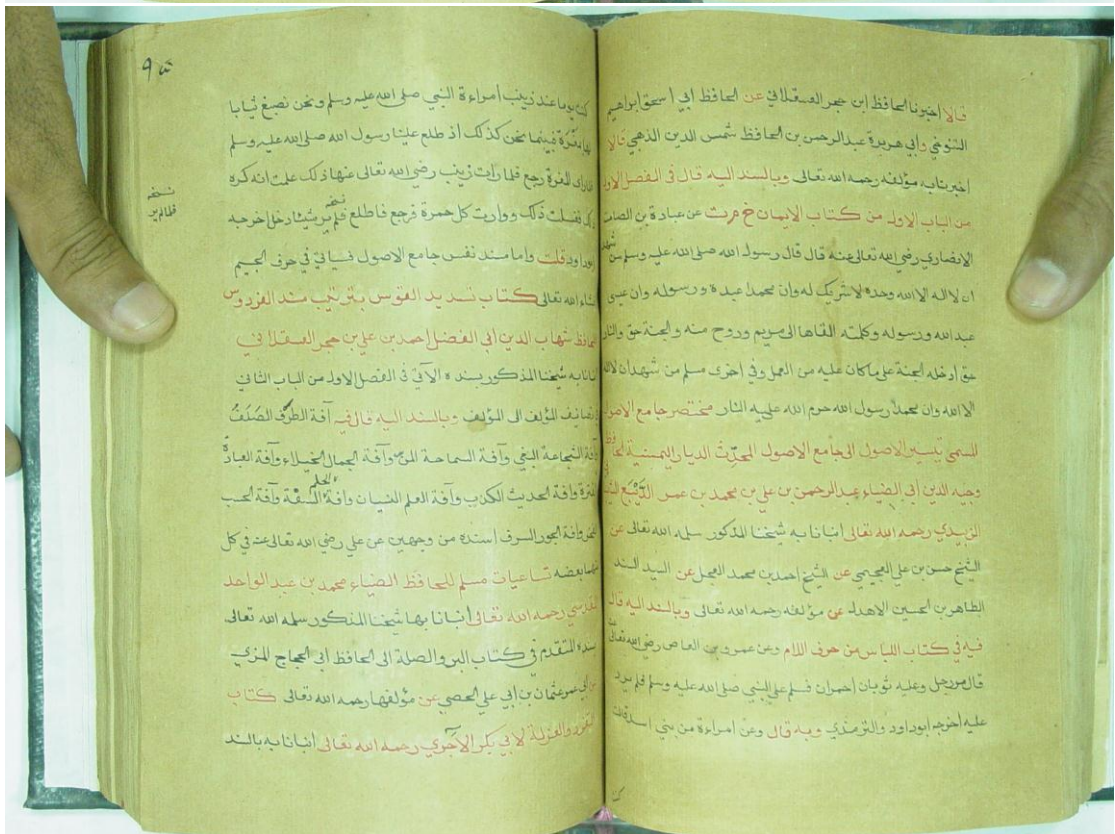 قالا اخبرنا الحافظ ابن حجر العسقلاني عن الحافظ ابي اسحق ابراهيم
التنوخي وأبي هريرة عبدالرحمن بن الحافظ شمس الدين الذهبي قالا
اخبرنا به مؤلفه رحمه الله تعالى وبالسند اليه قال في الفصل الاول
من الباب الاول من كتاب الايمان خ م ت عن عبادة بن الصامت
الانصاري رضي الله تعالى عنه قال قال رسول الله صلى الله عليه وسلم من شهد
ان لا اله الا الله وحده لاشريك له وان محمدا عبده ورسوله وان عيسى
عبدالله ورسوله وكلمته القاها الى مريم وروح منه والجنة حق والنار
حق ادخله الجنة على ماكان عليه من العمل وفي اخرى مسلم من شهد ان لااله
الا الله وان محمدا رسول الله حرم الله عليه النار مختصر جامع الاصول
المسمى تيسير الاصول الى جامع الاصول لمحدث الديار اليمنية الحافظ
وجيه الدين ابي الضياء عبدالرحمن بن علي بن محمد بن عمر الديبع
الزبيدي رحمه الله تعالى انبانا به شيخنا المذكور سلمه الله تعالى عن
الشيخ حسن بن علي العجيمي عن الشيخ احمد بن محمد العجل عن السيد السند
الطاهر بن الحسين الاهدل عن مؤلفه رحمه الله تعالى وبالسند اليه قال
فيه في كتاب اللباس من حرف اللام وعن عمرو بن العاص رضي الله تعالى عنه
قال مر رجل وعليه ثوبان احمران فسلم على النبي صلى الله عليه وسلم فلم يرد
عليه اخرجه ابوداود والترمذي وبه قال وعن امراءة من بني اسد قالت
كنت يوما عند زينب امراءة النبي صلى الله عليه وسلم ونحن نصبغ ثيابا
لها بمغرة فبينما نحن كذلك اذ طلع علينا رسول الله صلى الله عليه وسلم
فلما رأى المغرة رجع فلما رأت زينب رضي الله تعالى عنها ذلك علمت انه كره
ذلك فغسلت ذلك ووارت كل حمرة فرجع فاطلع فلم ير شيئا دخل اخرجه
نسخه
فلما لم ير
ابوداود قلت واما مسند نفس جامع الاصول فسياتي في حرف الجيم
انشاء الله تعالى كتاب تسديد القوس بترتيب مسند الفردوس
للحافظ شهاب الدين ابي الفضل احمد بن علي بن حجر العسقلاني
انبانا به شيخنا المذكور بسنده الآتي في الفصل الاول من الباب الثاني
في تصانيف المؤلف الى المؤلف وبالسند اليه قال فيه آفة الظرف الصلف
وآفة الشجاعة البغي وآفة السماحة المن وآفة الجمال الخيلاء وآفة العبادة
الفترة وافة الحديث الكذب وآفة العلم النسيان وافة الحلم السفه وآفة الحسب
الفخر وافة الجود السرف اسنده من وجهين عن علي رضي الله تعالى عنه في كل
منهما بعضه تساعيات مسلم للحافظ الضياء محمد بن عبد الواحد
المقدسي رحمه الله تعالى انبانا بها شيخنا المذكور سلمه الله تعالى
بسنده المتقدم في كتاب البر والصلة الى الحافظ ابي الحجاج المزي
عن ابي عمر عثمان بن ابي علي الحمصي عن مؤلفها رحمه الله تعالى كتاب
التفرد والعزلة لابي بكر الآجري رحمه الله تعالى انبانا به بالسند